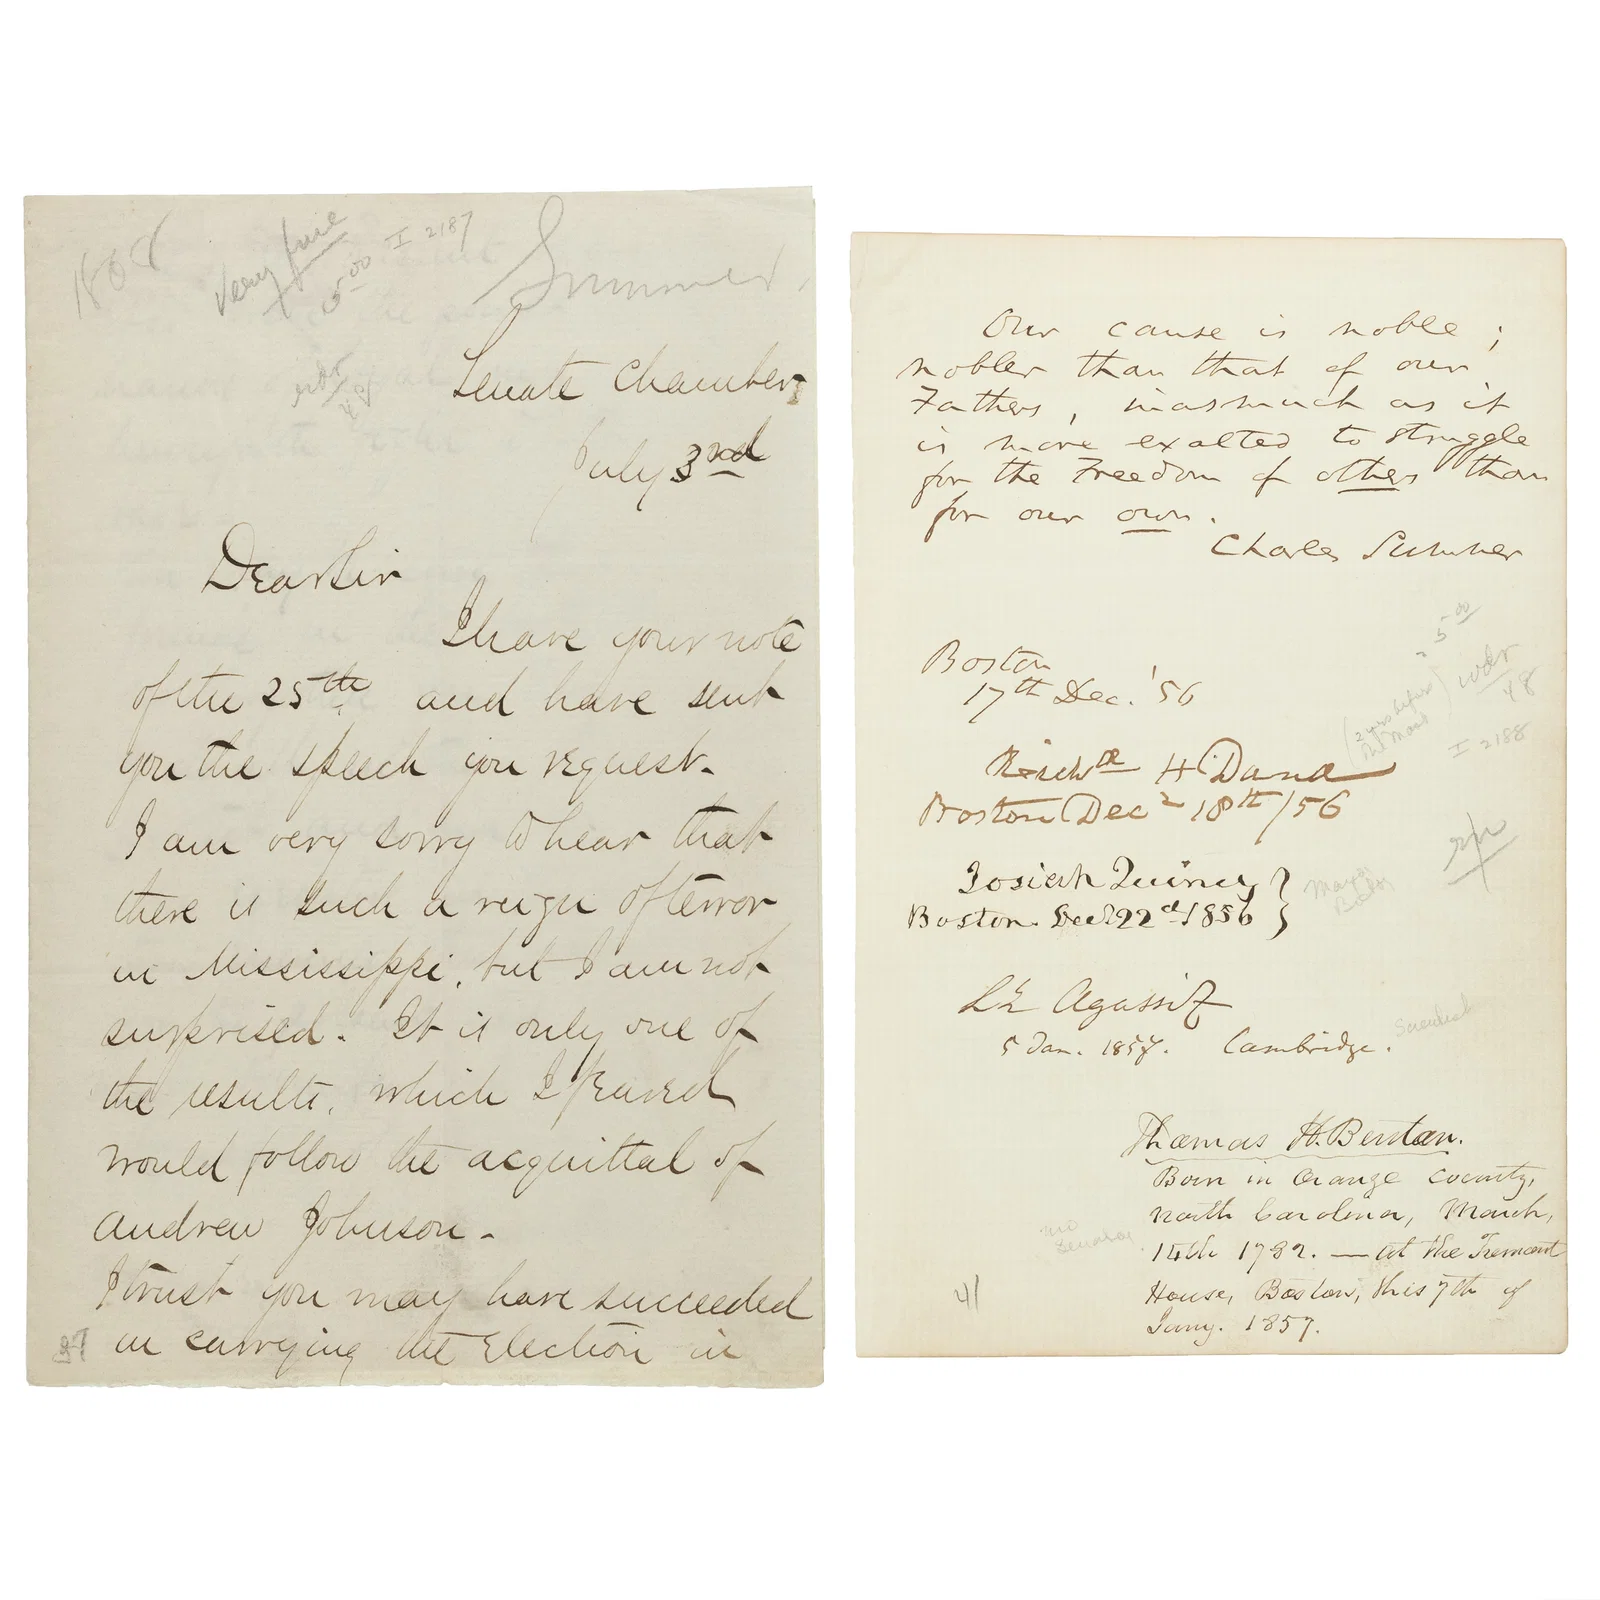 1868
Very fine
5.00
I 2187
Sumner.
wdr
48
Senate Chamber,
July 3rd
Dear Sir
I have your note
of the 25th and have sent
you the speech you request.
I am very sorry to hear that
there is such a reign of terror
in Mississippi, but I am not
surprised. It is only one of
the results, which I feared
would follow the acquittal of
Andrew Johnson.
I trust you may have succeeded
in carrying the Election in
Our cause is noble;
nobler than that of our
Fathers, inasmuch as it
is more exalted to struggle
for the Freedom of others than
for our own.
Charles Sumner
25.00
Boston
17th Dec. '56
wdr
48
I 2188
Richd H Dana
Boston Dec 18th/56
Josiah Quincy
Boston. Dec 22d 1856
Mayor
Ls Agassiz
5 Jan. 1857. Cambridge.
Scientist
Thomas H. Benton.
Born in Orange County,
North Carolina, March,
14th 1782. — at the Tremont
House, Boston, this 7th of
Jany. 1857.
41